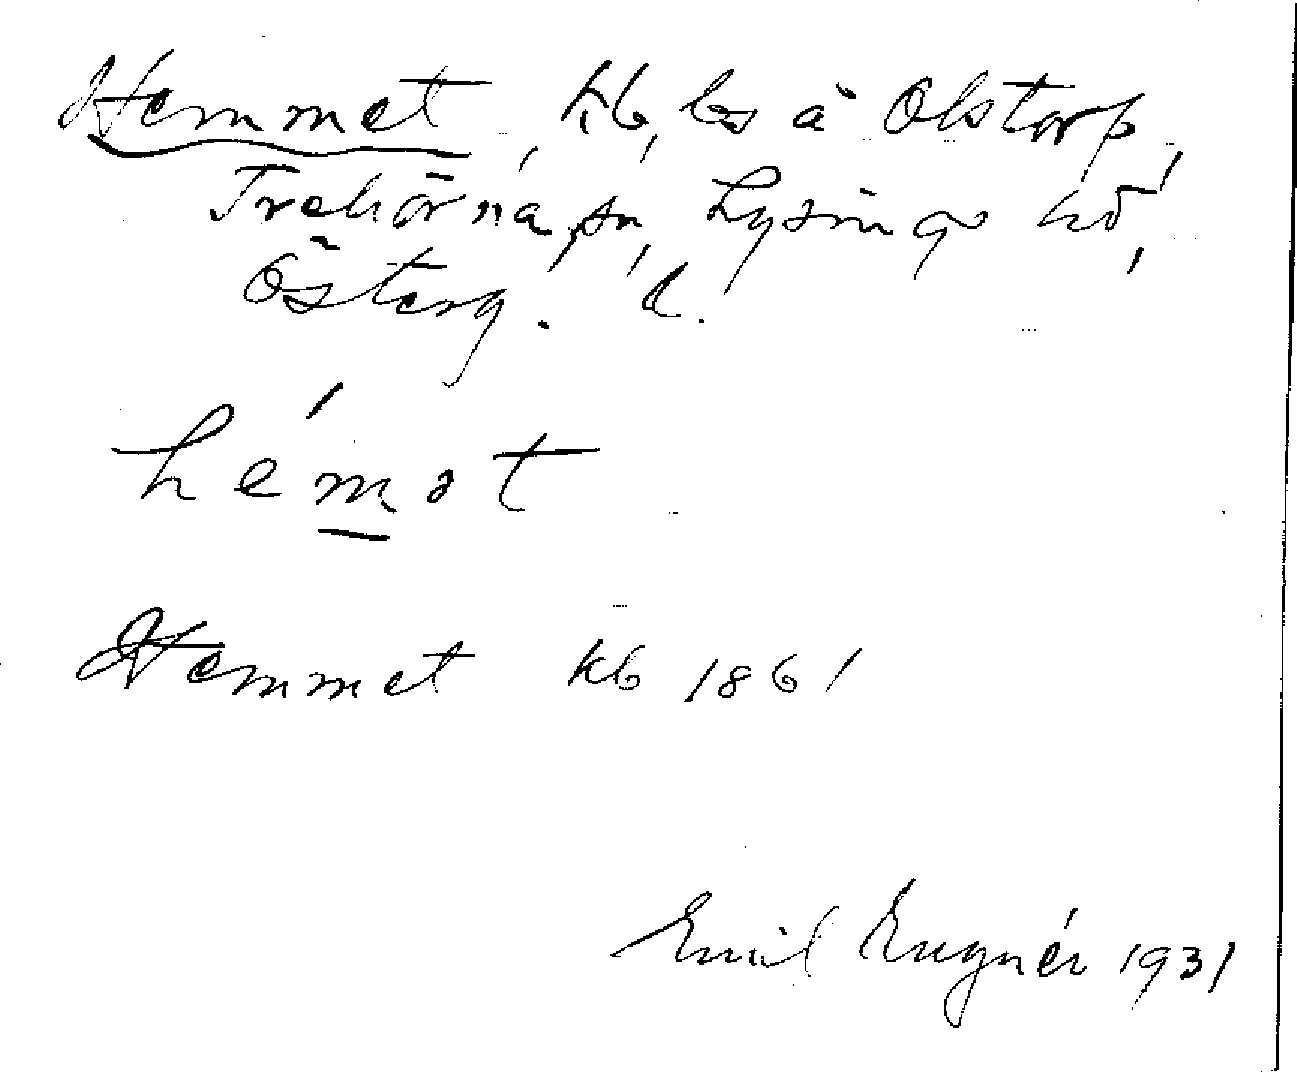 Hemmet, hb, ls å Olstorp,
Trehörna sn, Lysings hd,
Österg. l.
hémǝt
Hemmet kb 1861
Emil Engnér 1931